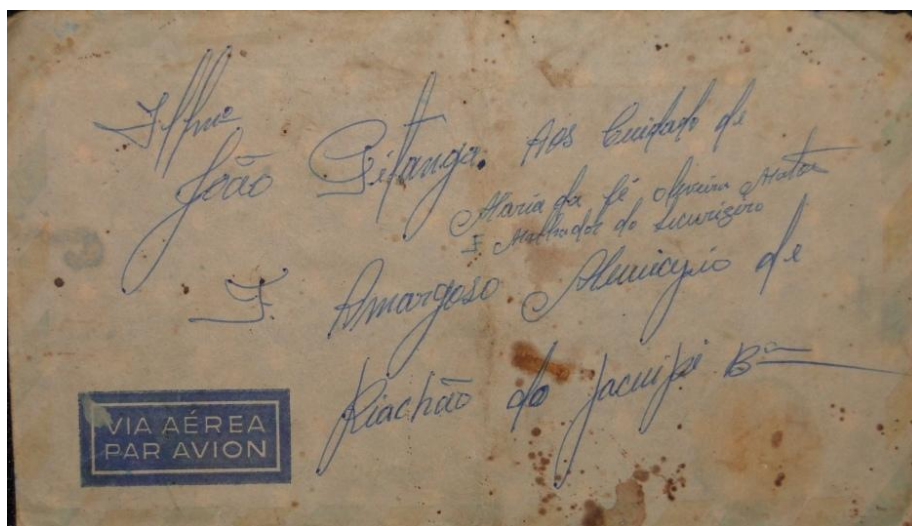 Illmo
João Pitanga. Aos Cuidado de
Maria da Fé Oliveira Mota
F Malhador do Licurizeiro
F Amargoso Municipio de
Riachão do Jacuipe Ba
VIA AÉREA
PAR AVION